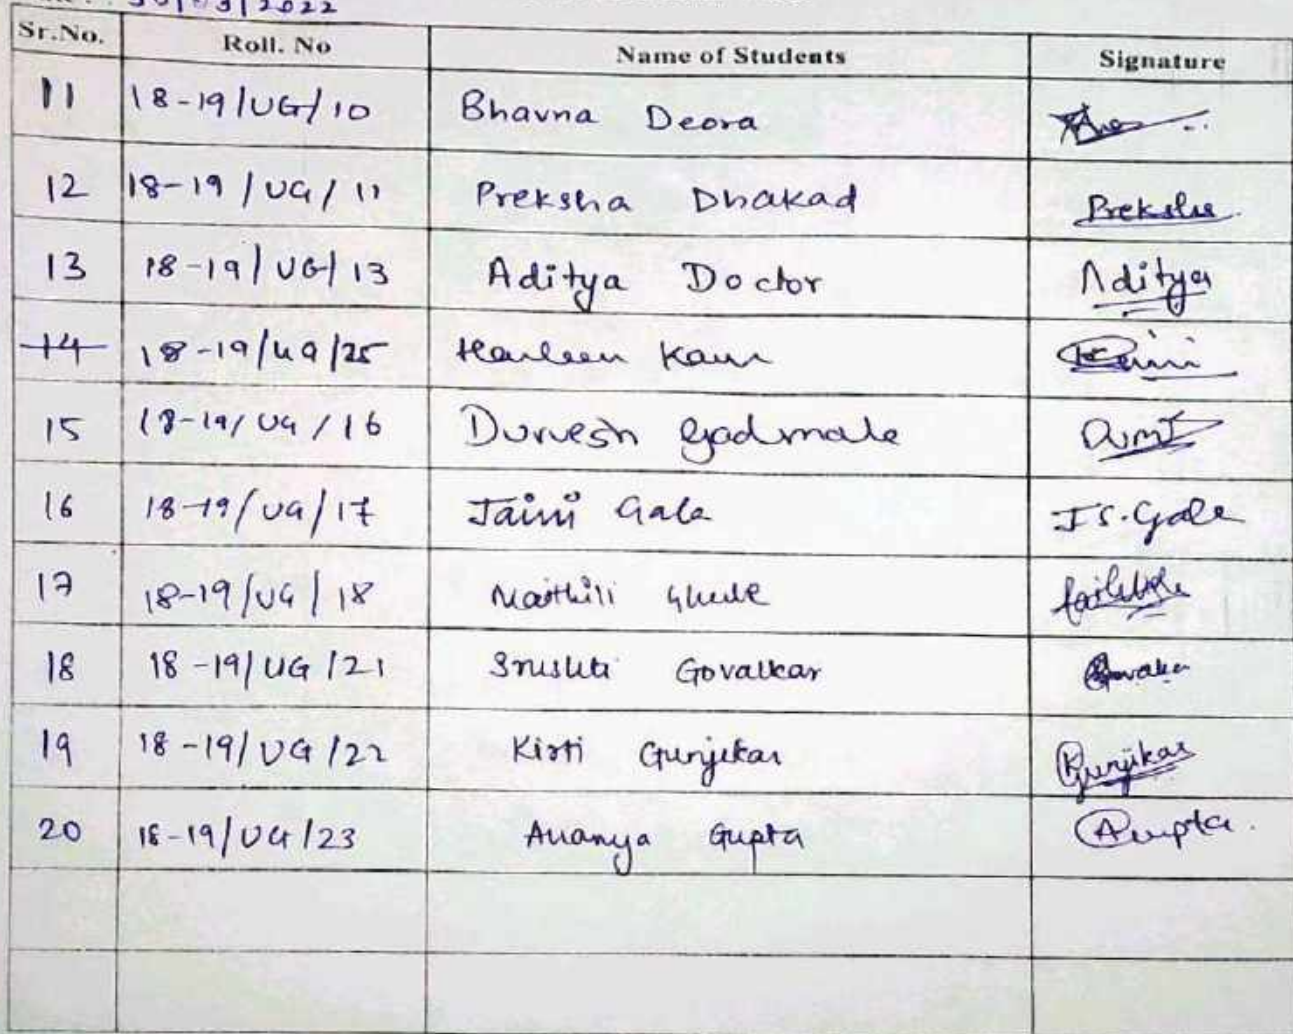 30/03/2022
Sr.No. Roll. No Name of Students Signature
11 18-19/UG/10 Bhavna Deora
12 18-19/UG/11 Preksha Dhakad Preksha
13 18-19/UG/13 Aditya Doctor Aditya
14 18-19/UG/25 Harleen Kaur
15 18-19/UG/16 Durvesh Gadmale
16 18-19/UG/17 Jaini Gala J S. Gala
17 18-19/UG/18 Maithili Ghule
18 18-19/UG/21 Srushti Govalkar
19 18-19/UG/22 Kirti Gunjikar Gunjikar
20 18-19/UG/23 Ananya Gupta AGupta.